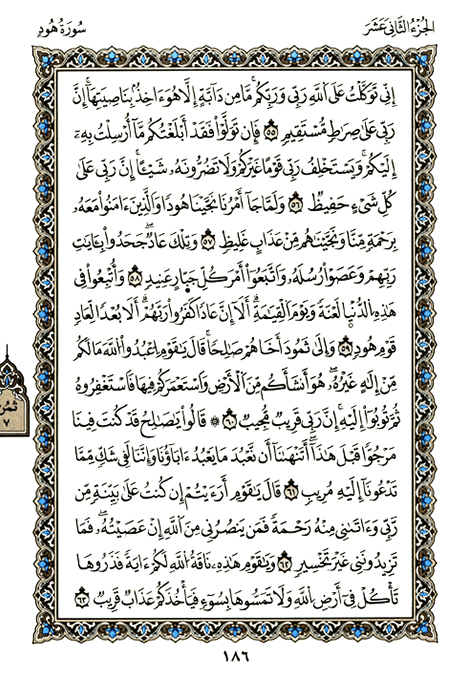 الجُزْءُ الثَّانِي عَشَرَ
سُورَةُ هُودٍ
إِنِّي تَوَكَّلْتُ عَلَى اَللَّهِ رَبِّي وَرَبِّكُمۖ مَّا مِن دَآبَّةٍ إِلَّا هُوَ ءَاخِذُۢ بِنَاصِيَتِهَآۚ إِنَّ
رَبِّي عَلَىٰ صِرَٰطٍ مُّسْتَقِيمٍ ٥٥ فَإِن تَوَلَّوْاْ فَقَدْ أَبْلَغْتُكُم مَّآ أُرْسِلْتُ بِهِۦٓ
إِلَيْكُمْۚ وَيَسْتَخْلِفُ رَبِّي قَوْمًا غَيْرَكُمْ وَلَا تَضُرُّونَهُۥ شَيْـًٔاۚ إِنَّ رَبِّي عَلَىٰ
كُلِّ شَيْءٍ حَفِيظٌ ٥٦ وَلَمَّا جَآ أَمْرُنَا نَجَّيْنَا هُودًا وَالَّذِينَ ءَامَنُواْ مَعَهُۥ
بِرَحْمَةٍ مِّنَّا وَنَجَّيْنَٰهُم مِّنْ عَذَابٍ غَلِيظٍ ٥٧ وَتِلْكَ عَادٌۖ جَحَدُواْ بِـَٔايَٰتِ
رَبِّهِمْ وَعَصَوْاْ رُسُلَهُۥ وَاتَّبَعُوٓاْ أَمْرَ كُلِّ جَبَّارٍ عَنِيدٍ ٥٨ وَأُتْبِعُواْ فِي
هَٰذِهِ اِلدُّنْيَا لَعْنَةً وَيَوْمَ اَلْقِيَٰمَةِۗ أَلَآ إِنَّ عَادًا كَفَرُواْ رَبَّهُمْۗ أَلَا بُعْدًا لِّعَادٍ
قَوْمِ هُودٍ ٥٩ وَإِلَىٰ ثَمُودَ أَخَاهُمْ صَٰلِحًاۚ قَالَ يَٰقَوْمِ اِعْبُدُواْ اُللَّهَ مَا لَكُم
مِّنْ إِلَٰهٍ غَيْرُهُۥۖ هُوَ أَنشَأَكُم مِّنَ اَلْأَرْضِ وَاسْتَعْمَرَكُمْ فِيهَا فَاسْتَغْفِرُوهُ
ثُمَّ تُوبُوٓاْ إِلَيْهِۚ إِنَّ رَبِّي قَرِيبٌ مُّجِيبٌ ٦٠ ۞ قَالُواْ يَٰصَٰلِحُ قَدْ كُنتَ فِينَا
مَرْجُوًّا قَبْلَ هَٰذَآۖ أَتَنْهَىٰنَآ أَن نَّعْبُدَ مَا يَعْبُدُ ءَابَآؤُنَا وَإِنَّنَا لَفِي شَكٍّ مِّمَّا
تَدْعُونَآ إِلَيْهِ مُرِيبٍ ٦١ قَالَ يَٰقَوْمِ أَرَءَيْتُمْ إِن كُنتُ عَلَىٰ بَيِّنَةٍ مِّن
رَّبِّي وَءَاتَىٰنِي مِنْهُ رَحْمَةً فَمَن يَنصُرُنِي مِنَ اَللَّهِ إِنْ عَصَيْتُهُۥۖ فَمَا
تَزِيدُونَنِي غَيْرَ تَخْسِيرٍ ٦٢ وَيَٰقَوْمِ هَٰذِهِۦ نَاقَةُ اُللَّهِ لَكُمْ ءَايَةً فَذَرُوهَا
تَأْكُلْ فِيٓ أَرْضِ اِللَّهِۖ وَلَا تَمَسُّوهَا بِسُوٓءٍ فَيَأْخُذَكُمْ عَذَابٌ قَرِيبٌ ٦٣
ثُمُن
٧
١٨٦